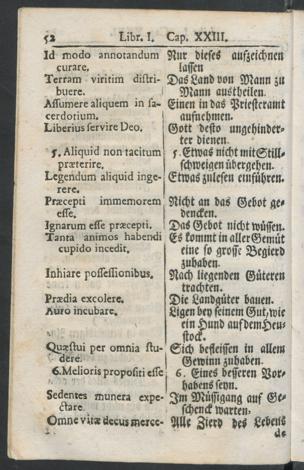 52 Libr. I. Cap. XXIII.
Id modo annotandum
curare.
Terram viritim distri-
buere.
Assumere aliquem in sa-
cerdotium.
Liberius servire Deo.
5. Aliquid non tacitum
præterire.
Legendum aliquid inge-
rere.
Præcepti immemorem
esse.
Ignarum esse præcepti.
Tanta animos habendi
cupido incedit.
Inhiare possessionibus.
Prædia excolere.
Auro incubare.
Quæstui per omnia stu-
dere.
6. Melioris propositi esse
Sedentes munera expe-
ctare.
Omne vitæ decus merce-
Nur dieses aufzeichnen
lassen
Das Land von Mann zu
Mann austheilen.
Einen in das Priesteramt
aufnehmen.
Gott desto ungehinder-
ter dienen.
5. Etwas nicht mit Still-
schweigen übergehen.
Etwas zulesen einführen.
Nicht an das Gebot ge-
dencken.
Das Gebot nicht wüssen.
Es kommt in aller Gemüt
eine so grosse Begierd
zuhaben.
Nach liegenden Güteren
trachten.
Die Landgüter bauen.
Ligen bey seinem Gut, wie
ein Hund auf dem Heu-
stock.
Sich befleissen in allem
Gewinn zuhaben.
6. Eines besseren Vor-
habens seyn.
Im Müssigang auf Ge-
schenck warten.
Alle Zierd des Lebens
de